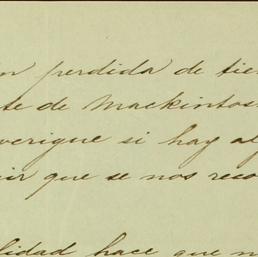 perdida de
te de Mackintos
verigue si hay al
ir que se nos reco
lidad hace que n